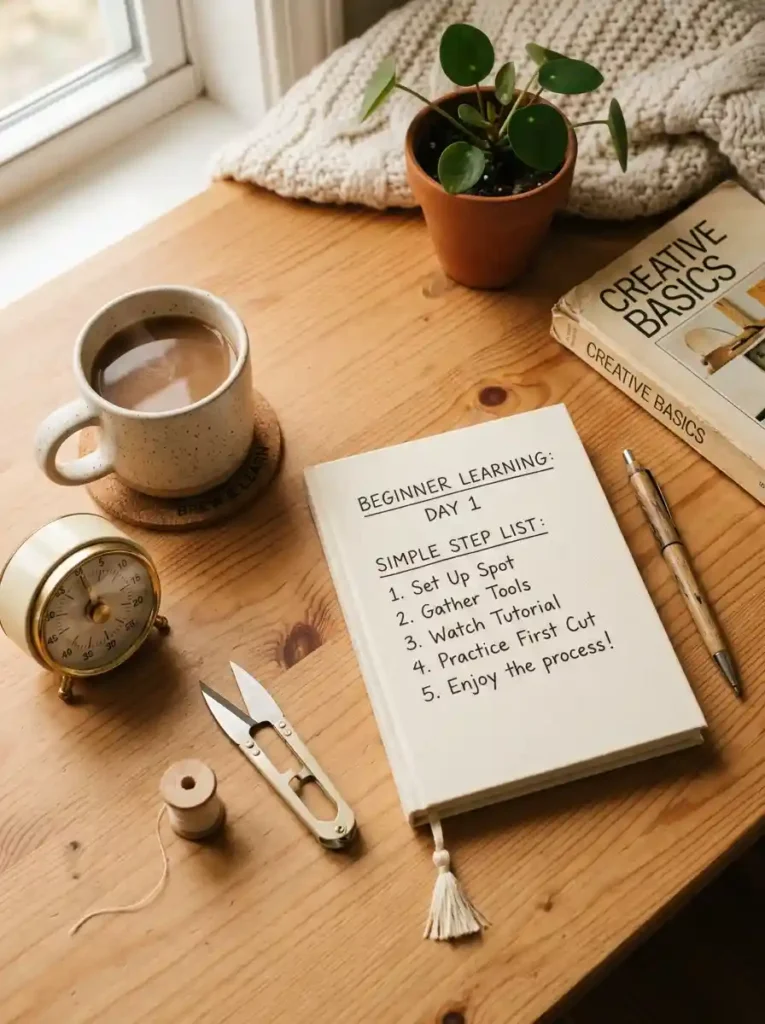 CREATIVE
BASICS
CREATIVE BASICS
BEGINNER LEARNING:
DAY 1
SIMPLE STEP LIST:
1. Set Up Spot
2. Gather Tools
3. Watch Tutorial
4. Practice First Cut
5. Enjoy the process!
5
10
15
20
25
30
35
40